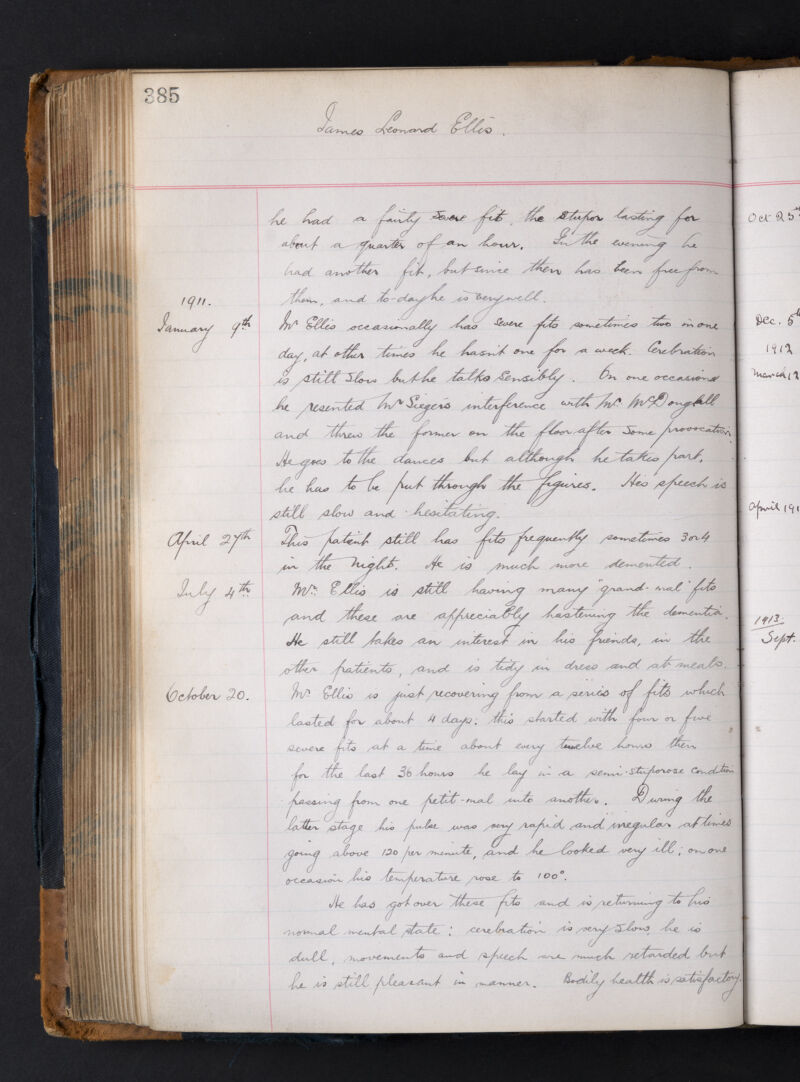 385
James Leonard Ellis.
he had a fairly severe fit, the stupor lasting for
about a quarter of an hour. In the evening he
had another fit, but since then has been free from
them, and to-day he is very well.
1911.
January 9th Mr Ellis occasionally has severe fits sometimes two in one
day, at other times he hasn't one for a week. Cerebration
is still slow but he talks sensibly. On one occasion
he resented Mr Sieger's interference with Mr. McDougall
and threw the former on the floor after some provocation.
He goes to the dances but although he takes part,
he has to be put through the figures. His speech is
still slow and hesitating.
April 27th This patient still has fits frequently sometimes 3 or 4
in the night. He is much more demented.
July 4th Mr. Ellis is still having many "grand-mal" fits
and these are appreciably hastening the dementia.
He still takes an interest in his friends, in the
other patients, and is tidy in dress and at meals.
October 20. Mr Ellis is just recovering from a series of fits which
lasted for about 4 days; this started with four or five
severe fits at a time about every twelve hours then
for the last 36 hours he lay in a semi-stuporose condition
passing from one petit-mal into another. During the
latter stage his pulse was very rapid and irregular at times
going above 120 per minute, and he looked very ill; on one
occasion his temperature rose to 100°.
He has got over these fits and is returning to his
normal mental state: cerebration is very slow, he is
dull, movements and speech are much retarded but
he is still pleasant in manner. Bodily health is satisfactory.
Oct 25th
Dec. 5th
1912
March 12
April 191
1913
Sept.